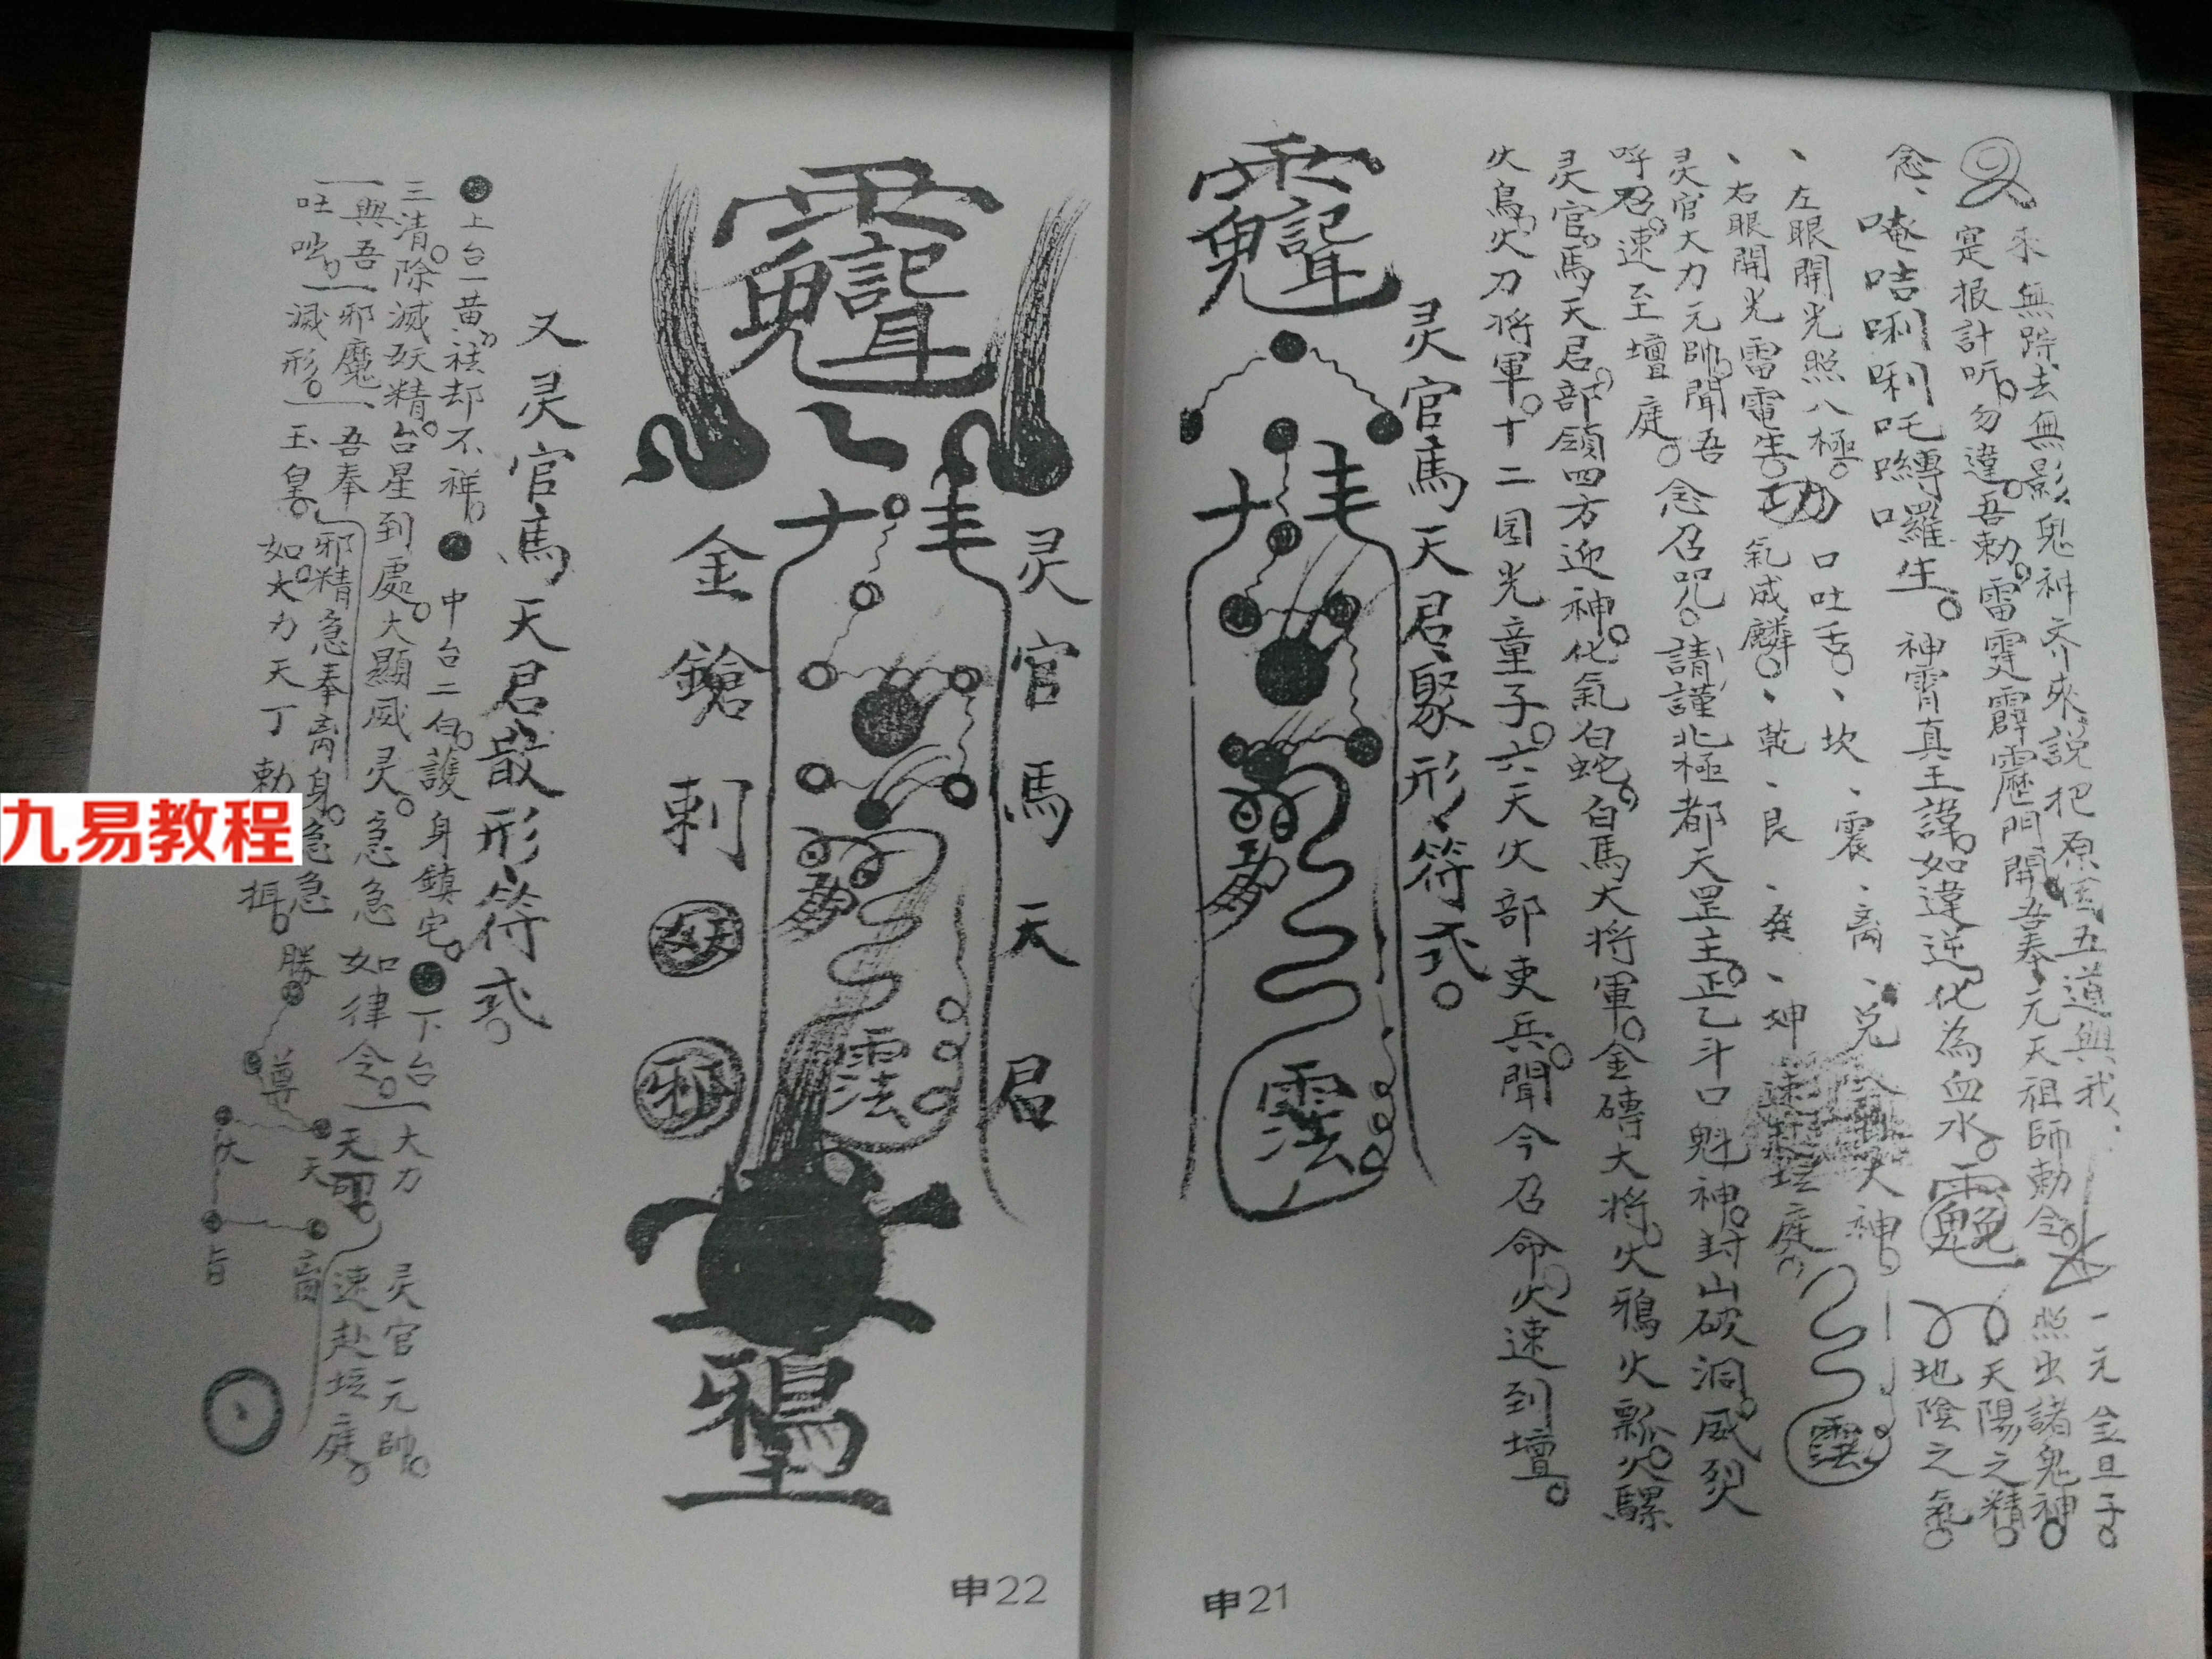 來無踪去無影鬼神齐來說把原因五道與我
寔报計听勿違吾勅雷霆霹靂門開吾奉元天祖師勅令
一元金旦子
照出諸鬼神
天陽之精
地陰之氣
念、唵咭唎唎吒
嚩羅生。神霄真王諱。如違逆化為血水。
、左眼開光照八極。口吐舌、坎、震、离、兑
大神。
、右眼開光雷電生。功 氣成麟。、乾、艮、巽、坤
速赴坛庭。
灵官大力元帥聞吾
呼召。速至壇庭。
念召咒。請謹北極都天罡主。正乙斗口魁神。封山破洞。威烈
灵官。馬天君。部領四方迎神。化氣白蛇。白馬大將軍。金磚大將。火鴉火瓢。火騾
火鳥。火刀將軍。十二囯光童子。六天火部吏兵。聞今召命。火速到壇。
灵官馬天君聚形符式。
申21
灵官馬天君
金鎗刺妖邪
鴉
又灵官馬天君散形符式。
上台一黄。祛却不祥。中台二白。護身鎮宅。下台
三清。除滅妖精。台星到處。大顯威灵。急急如律令。
大力天
與吾邪魔
吾奉
邪精急奉
身。急急
吐吣。滅形。
玉皇。
如大力天丁
勅
攝。
灵官元帥。
速赴坛庭。
勝
尊
伏
天
申22
九易教程